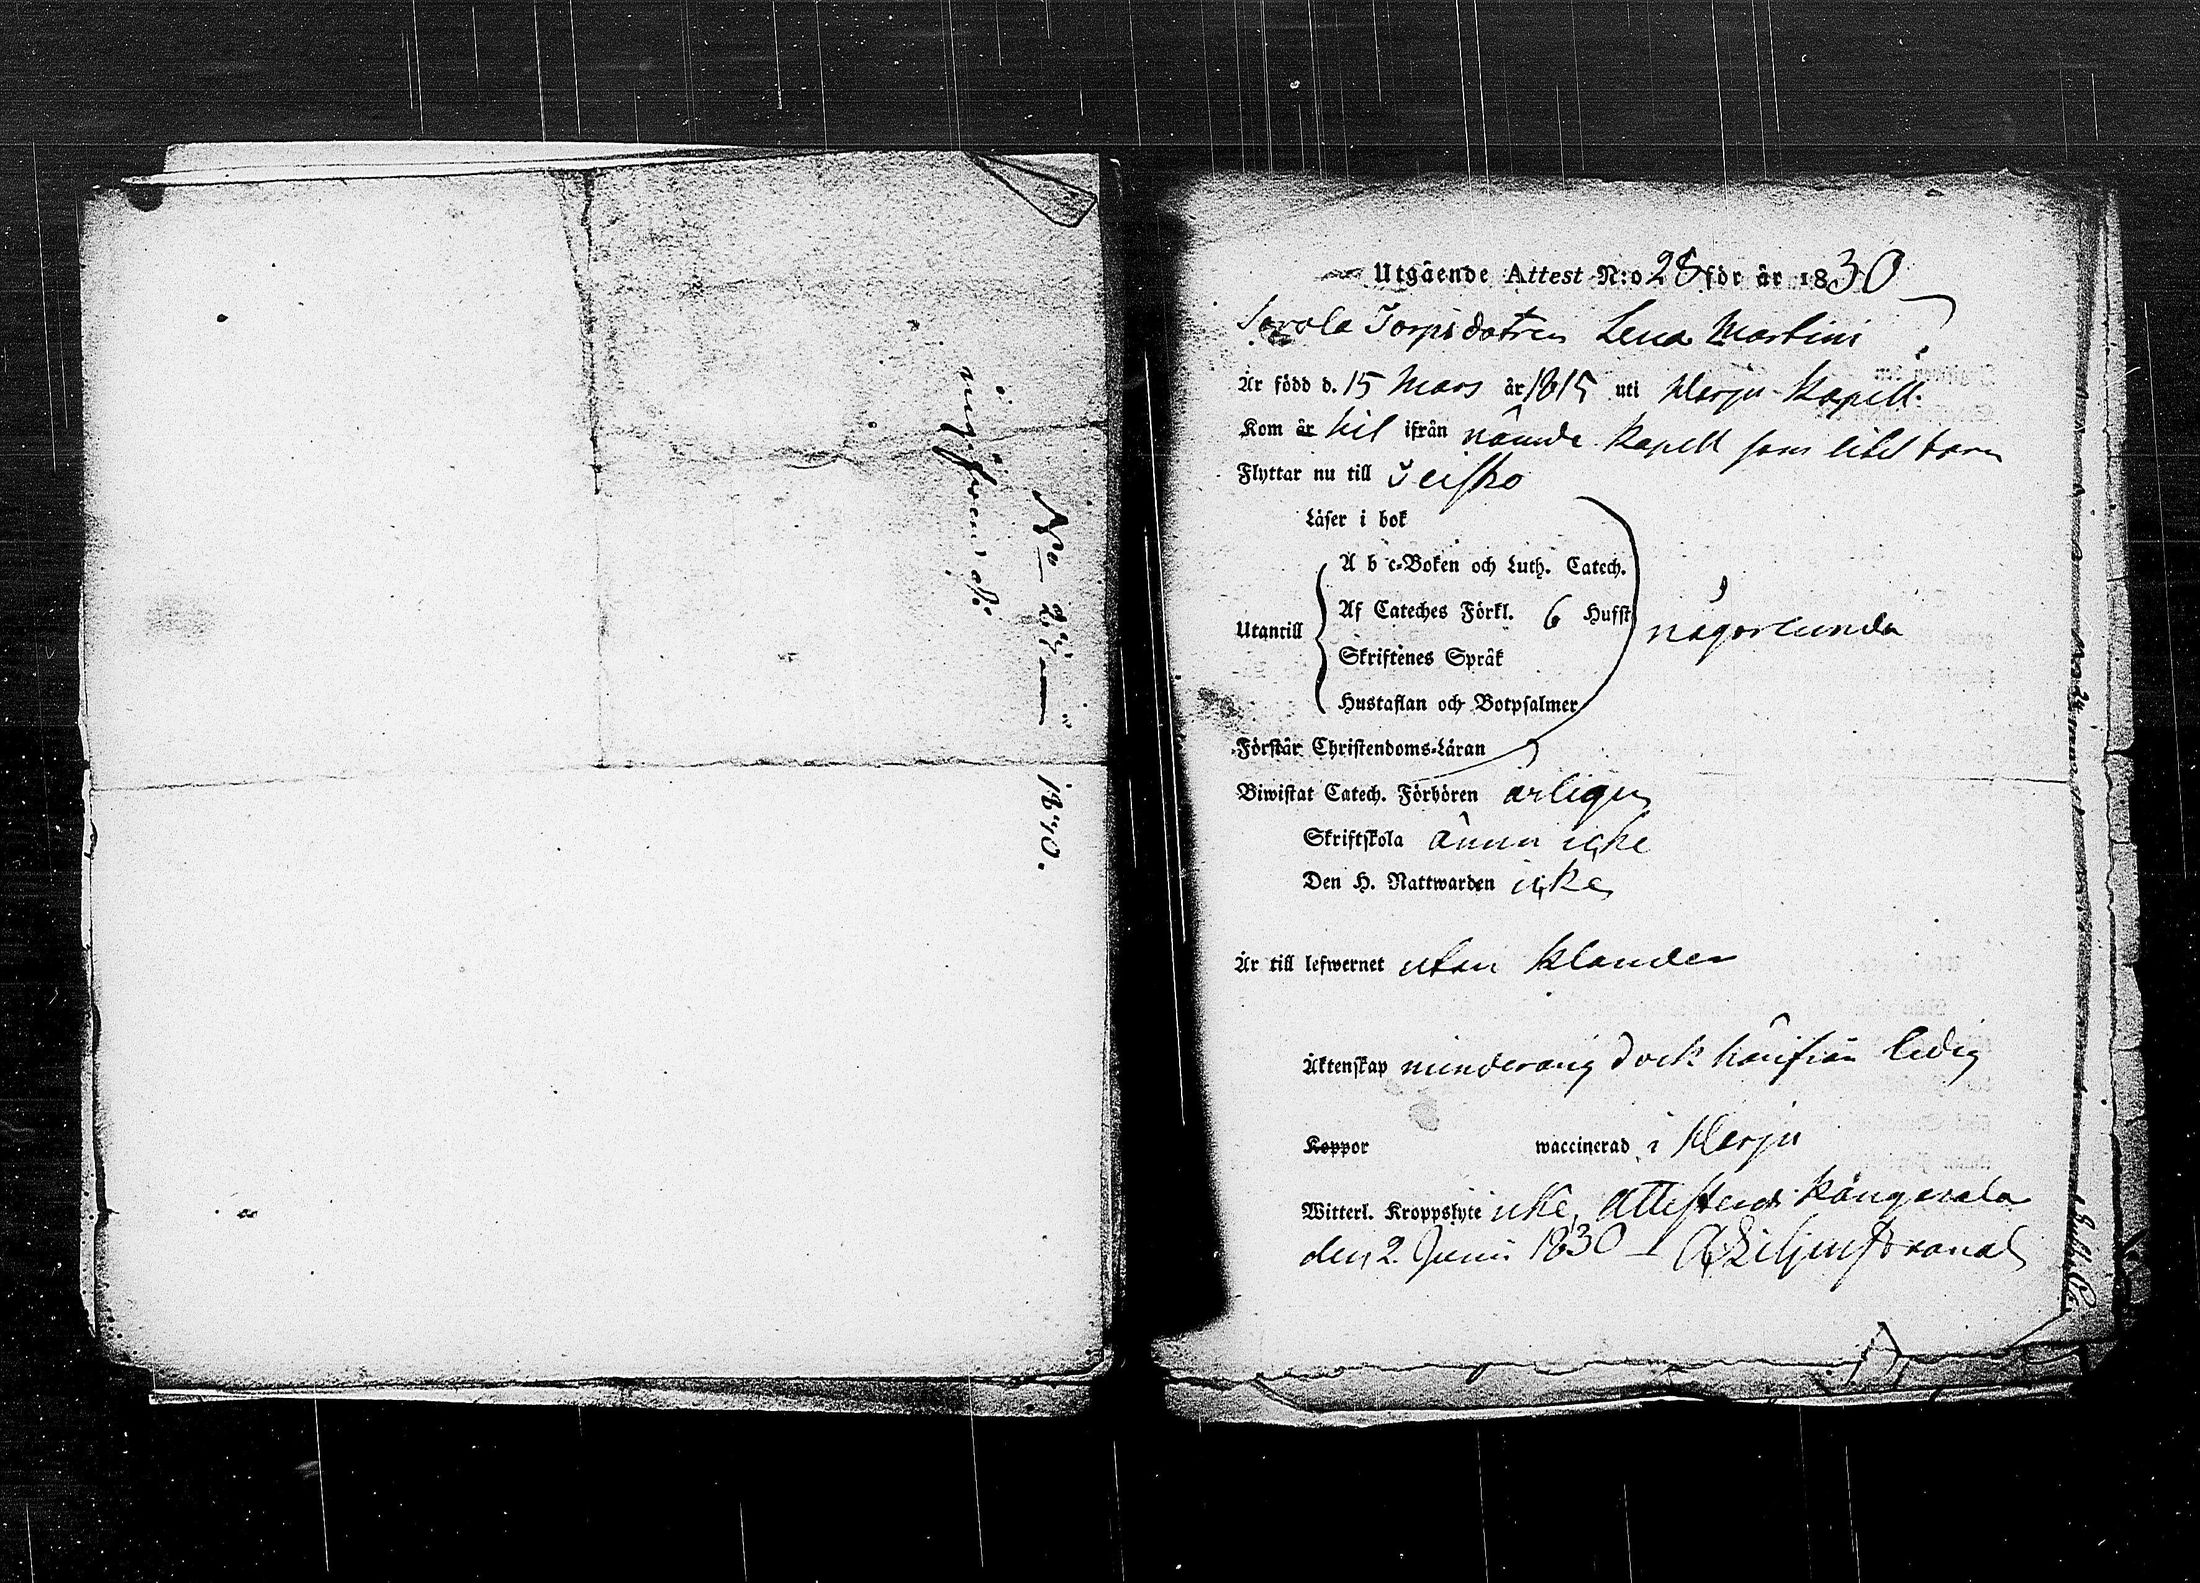 No 24
1830.
Utgående Attest N:o 28 för år 1830
Sorola Torpsdotren Lena Martini
Är född d. 15 Mars år 1815 uti Merju Kapell.
Kom år hit ifrån nämde Kapell som litet barn
Flyttar nu till Teisko
Läser i bok
A b c-Boken och Luth. Catech.
Utantill Af Cateches Förkl. 6 Hufst någorlunda
Skriftenes Språk
Hustaflan och Botpsalmer
Förstår Christendoms-Läran
Biwistat Catech. Förhören årligen
Skriftskola ännu icke
Den H. Nattwarden icke
Är till lefwernet utan klander
Äktenskap minderårig dock härifrån ledig
Koppor waccinerad i Merju
Witterl. Kroppslyte icke, Attesterar Kangasala
den 2. Junii 1830 A Liljenstrand